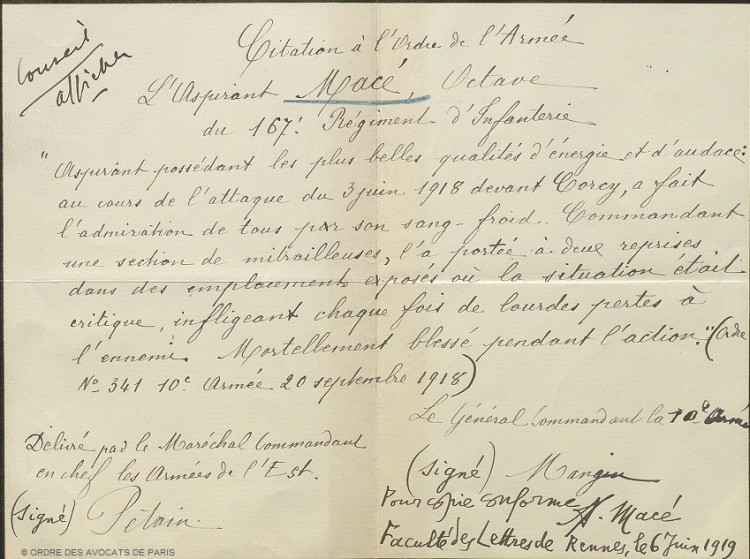 Conseil
afficher
Citation à l'Ordre de l'Armée
L'Aspirant Macé, Octave
du 167e Régiment d'Infanterie
"Aspirant possédant les plus belles qualités d'énergie et d'audace:
au cours de l'attaque du 3 juin 1918 devant Corcy, a fait
l'admiration de tous par son sang-froid. Commandant
une section de mitrailleuses, l'a portée à deux reprises
dans des emplacement exposés où la situation était
critique, infligeant chaque fois de lourdes pertes à
l'ennemi. Mortellement blessé pendant l'action." (Ordre
No 341 10e Armée 20 septembre 1918)
Le Général Commandant la 10e Armé
(Signé) Mangin
Délivré par le Maréchal Commandant
en chef les Armées de l'Est.
(Signé) Pétain.
Pour copie conforme A. Macé
Faculté des Lettres de Rennes, le 6 juin 1919
© ORDRE DES AVOCATS DE PARIS